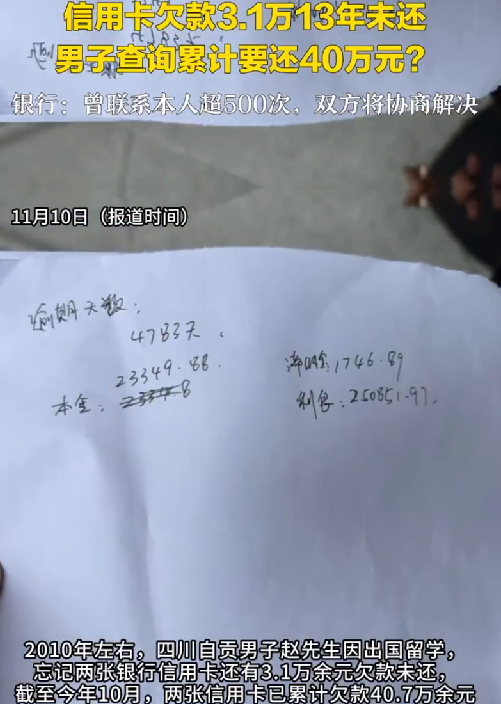 信用卡欠款3.1万13年未还
男子查询累计要还40万元?
银行:曾联系本人超500次,双方将协商解决
11月10日(报道时间)
逾期天数:
4783天.
23349.88.
本金:
滞纳金:1746.89
利息:250851.97.
2010年左右,四川自贡男子赵先生因出国留学,
忘记两张银行信用卡还有3.1万余元欠款未还,
截至今年10月,两张信用卡已累计欠款40.7万余元